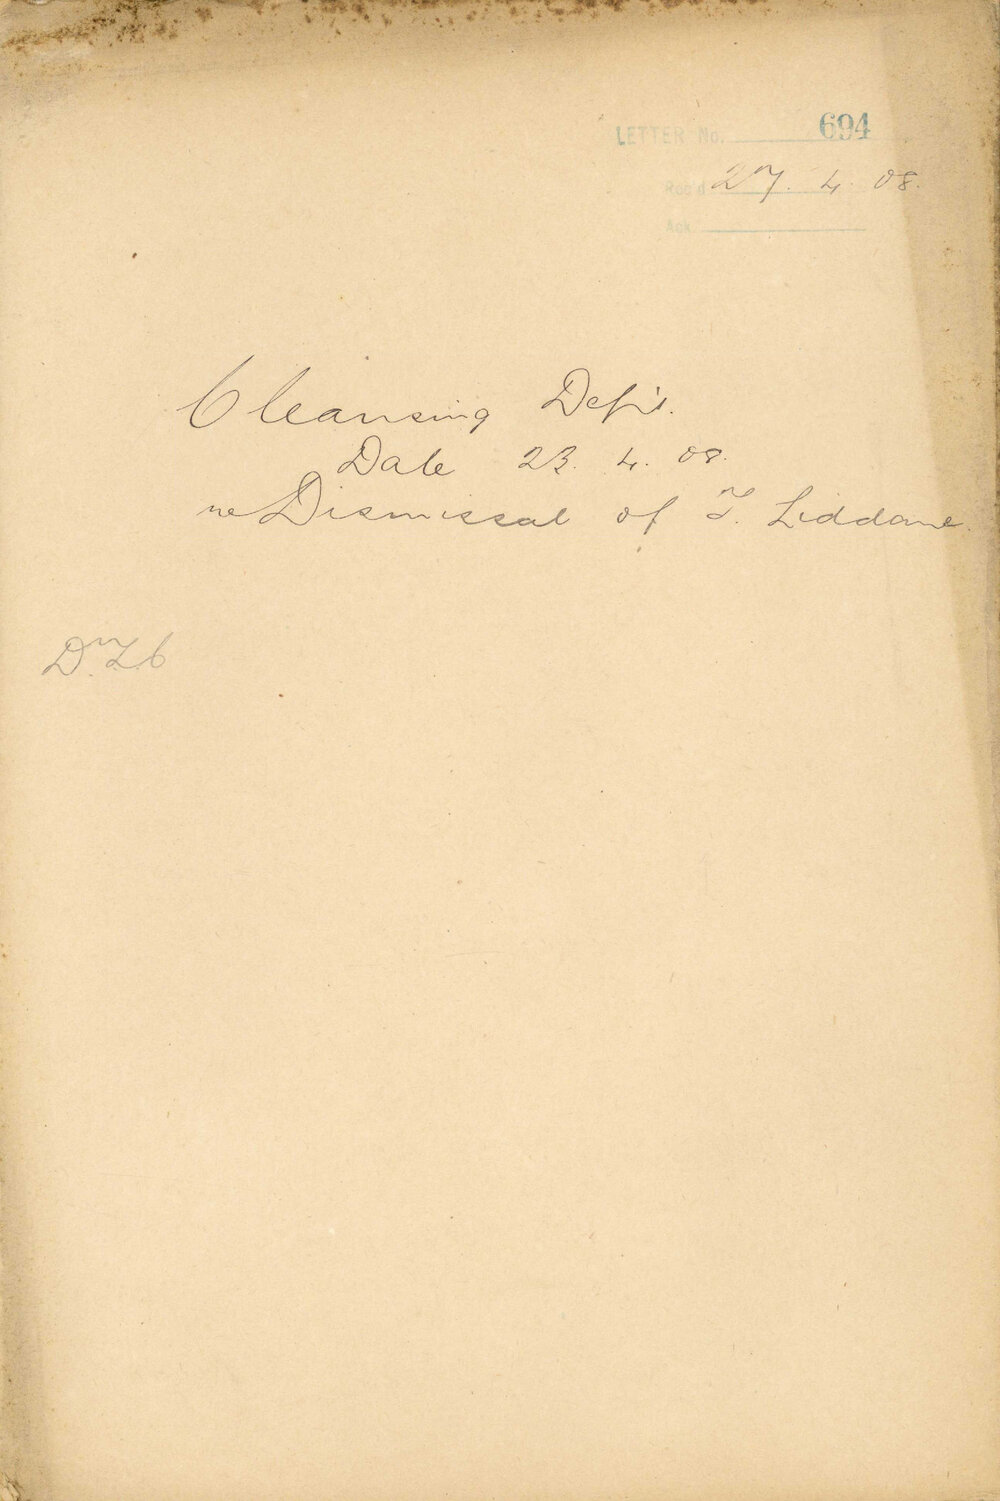 LETTER No. 694
Rec'd 27. 4. 08.
Ack
Cleansing Dept.
Date 23. 4. 08.
re Dismissal of T. Liddane.